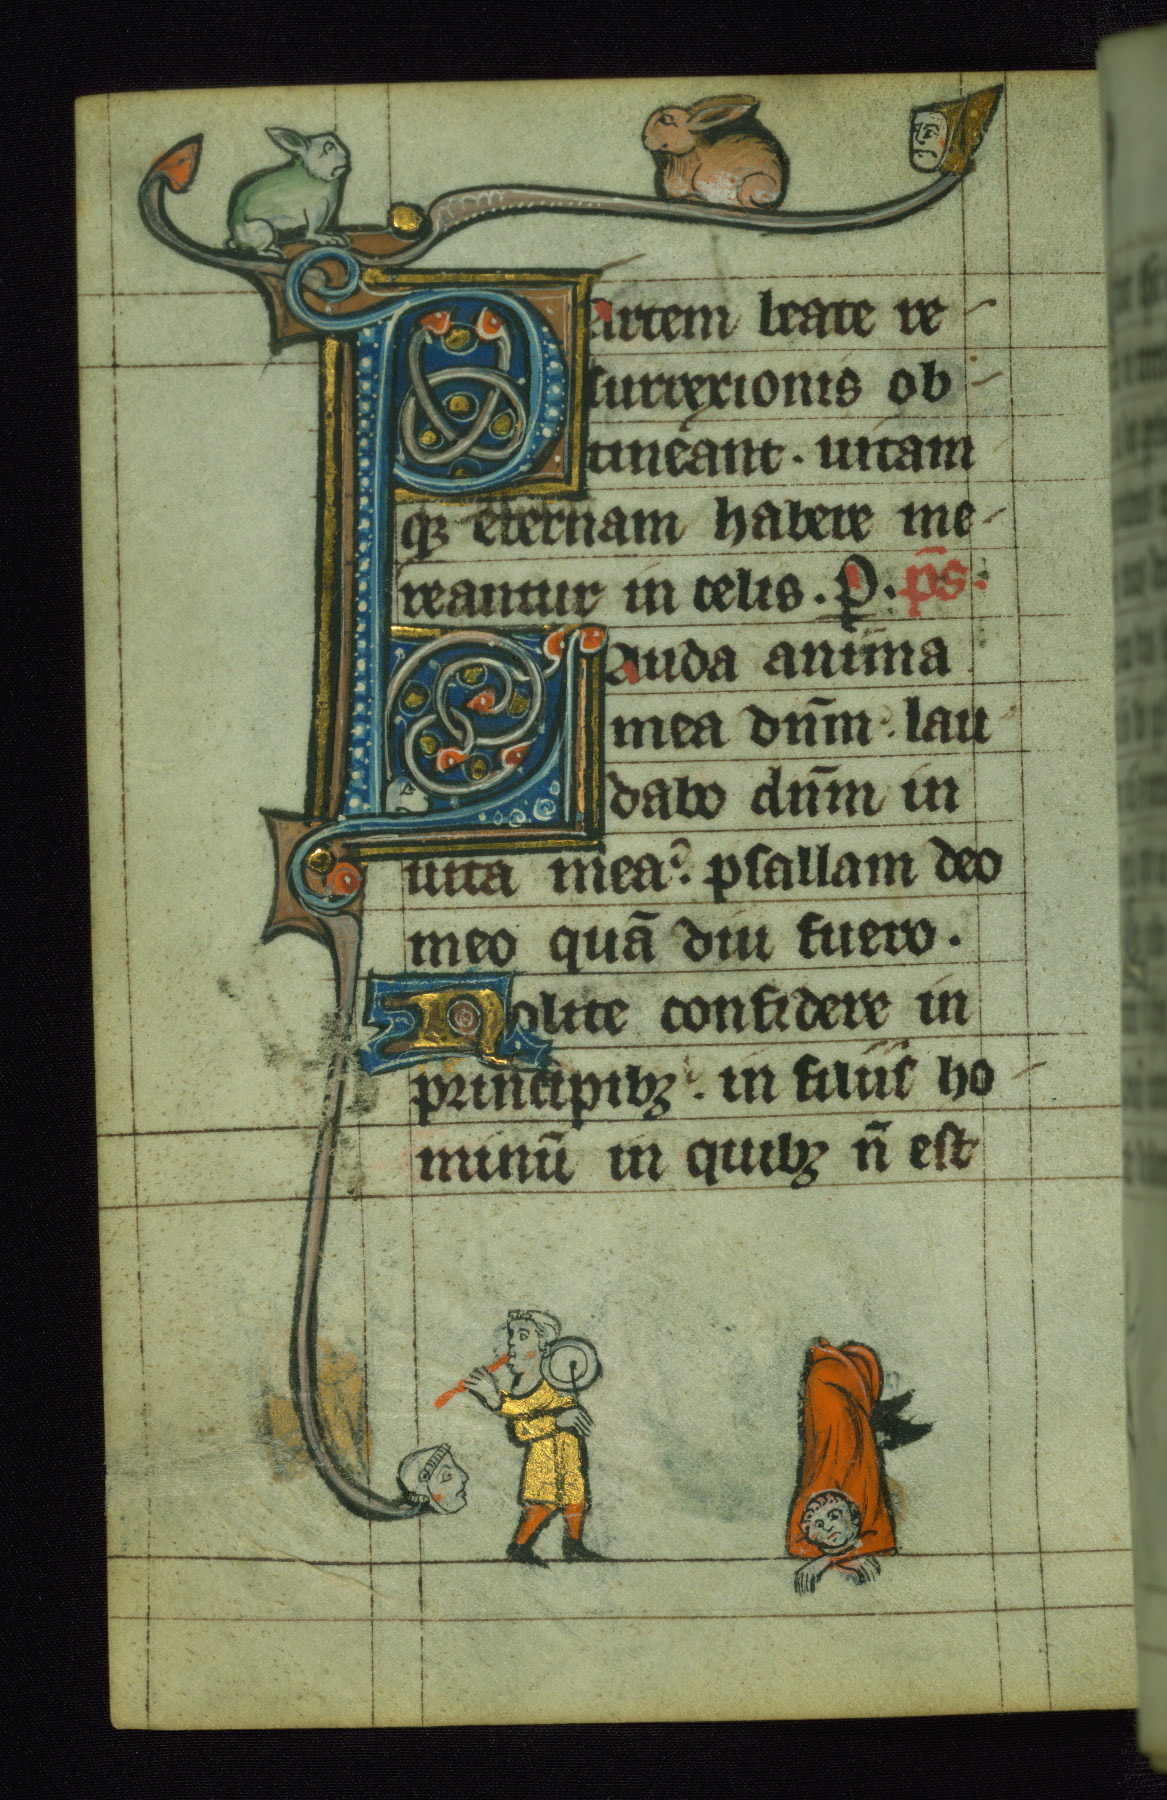 Partem beate re
surrexionis ob
tineant. uitam
qȝ eternam habere me
reantur in celis. P. p̄s.
Lauda anima
mea dn̄m. lau
dabo dn̄m in
uita mea. psallam deo
meo quā diu fuero.
Nolite confidere in
principibȝ. in filiis ho
minū in quibȝ n̄ est